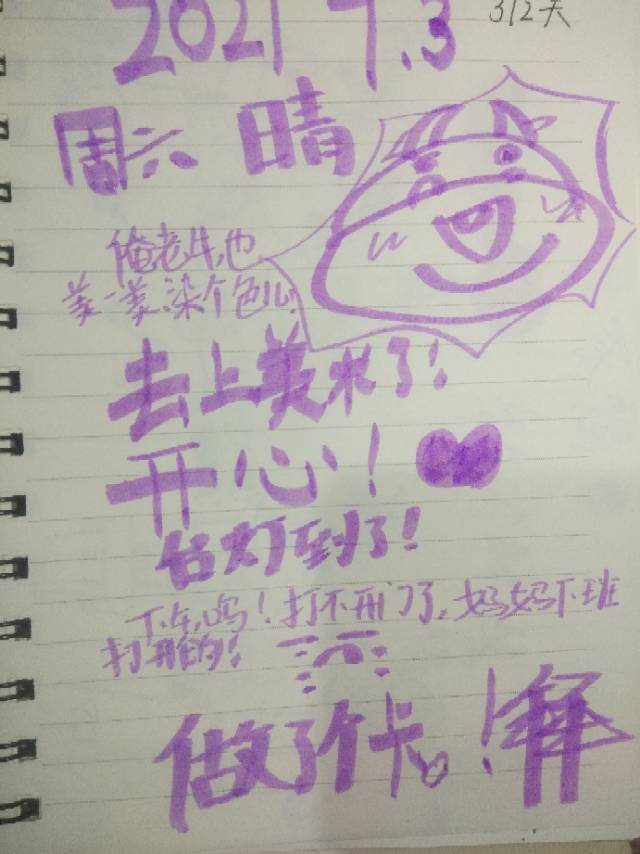 312天
2021 7.3
周六 晴
俺老牛也
美一美,染个色儿!
去上美术了!
开心!
台灯到了!
下午,呜!打不开门了,妈妈下班
打开的!
做了个卡。!